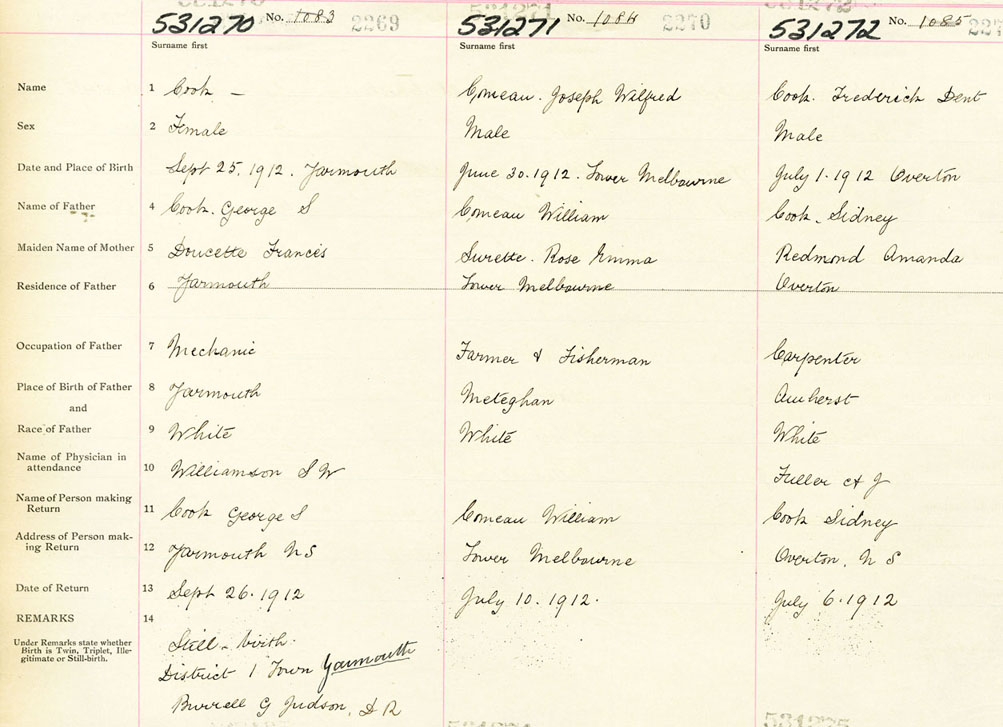 531270 No. 1083 2269 531271 No. 1084 2270 531272 No. 1085
Surname first Surname first Surname first
Name 1 Cook – Comeau. Joseph Wilfred Cook. Frederick Dent
Sex 2 Female Male Male
Date and Place of Birth 3 Sept 25. 1912. Yarmouth June 30. 1912. Lower Melbourne July 1. 1912 Overton
Name of Father 4 Cook. George S Comeau William Cook. Sidney
Maiden Name of Mother 5 Doucette Francis Surette. Rose Emma Redmond Amanda
Residence of Father 6 Yarmouth Lower Melbourne Overton
Occupation of Father 7 Mechanic Farmer & Fisherman Carpenter
Place of Birth of Father 8 Yarmouth Meteghan Amherst
and
Race of Father 9 White White White
Name of Physician in
attendance 10 Williamson S W Fuller A J
Name of Person making
Return 11 Cook George S Comeau William Cook Sidney
Address of Person mak-
ing Return 12 Yarmouth N S Lower Melbourne Overton, N S
Date of Return 13 Sept 26. 1912 July 10. 1912. July 6. 1912
REMARKS 14
Under Remarks state whether
Birth is Twin, Triplet, Ille-
gitimate or Still-birth.
Still-birth.
District 1 Town Yarmouth
Burrell G Judson, D R